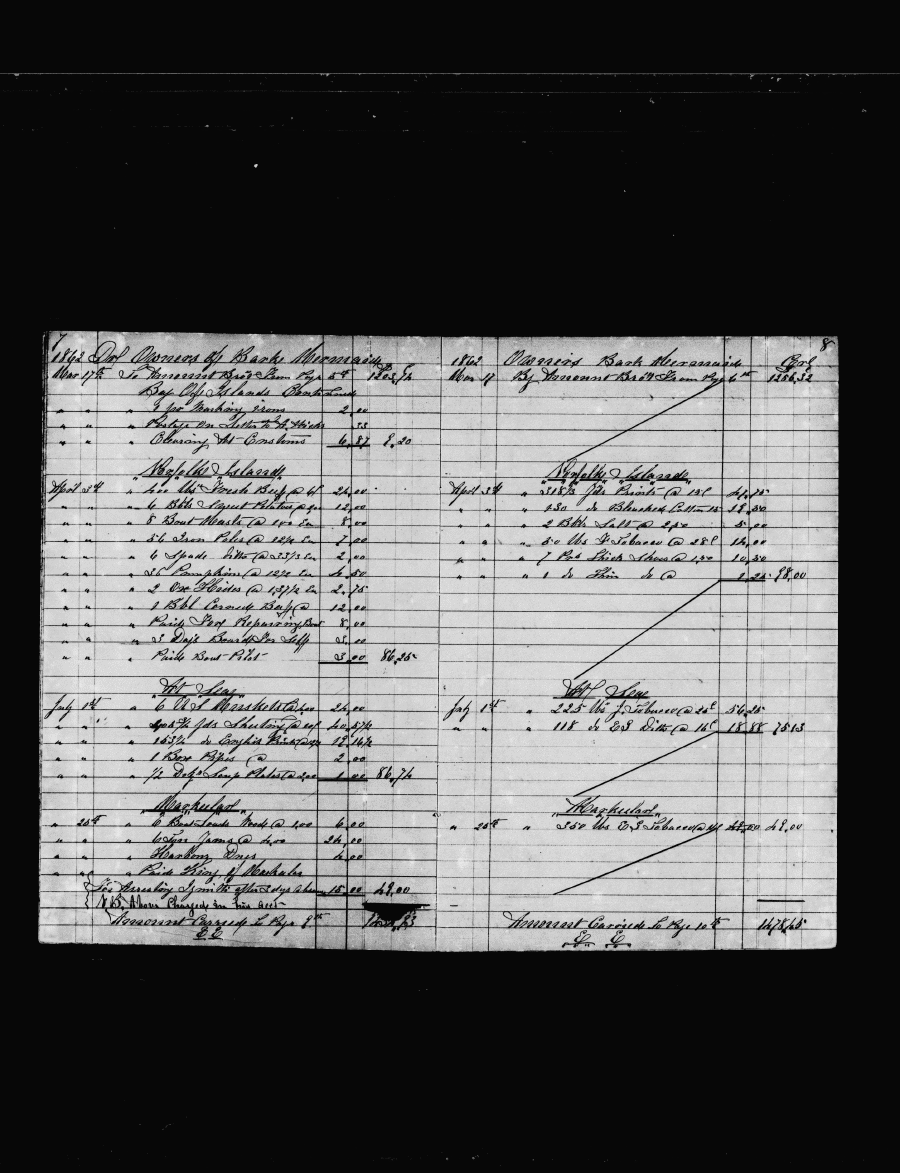 7
1862 Drs Owners of Barke Mermaid
Mar 17th To Amount Brot From Page 5th
Bay Off Islands Continued
" " " Marking Irons 2,00
" " " Postage on Letter to Hicks 33
" " " Clearing At Customs 6,87 9,20
"Norfolk Island"
April 3rd " 400 lbs Fresh Beef @ 6c 24,00
" " " 6 Bbls Sweet Potatoes @ 12,00
" " " 8 Boat Masts @ 1,00 Ea 8,00
" " " 56 Iron Poles @ 12½ Ea 7,00
" " " 6 Spade ditto @ 33⅓ Ea 2,00
" " " 36 Pumpkins @ 12½ Ea 4,50
" " " 2 Ox Hides @ 1,37½ Ea 2,75
" " " 1 Bbl Corned Beef @ 12,00
" " " Paid For Repairing Boat 8,00
" " " 3 Days Board For Self 3,00
" " " Paid Boat Pilot 3,00 86,25
"At Sea"
July 1st " 6 U S Muskets @ 24,00
" " " Yds Sheeting @ 40,57½
" " " 153½ do English Prints @ 19,16½
" " " 1 Box Pipes @ 2,00
" " " ½ Doz Soup Plates @ 2,00 1,00 86,74
" 25th " 6 Boat loads Wood @ 1,00 6,00
" " " 6 Tons Yams @ 4,00 24,00
" " " Harbour Dues 4,00
" " " Paid King of
For Arresting after 3 days 15,00 49,00
Above Charged in his acct
Amount Carried To Page 9th
E E
8
1862 Owners Bark Mermaid Crs
Mar 17 By Amount Brot From Page 6th 1256,32
"Norfolk Island"
April 3rd " 318⅓ Yds Prints @ 15c 47,75
" " " 130 do Bleached Cotton 15 19,50
" " " 2 Bbls Salt @ 2,50 5,00
" " " 50 lbs Tobacco @ 28c 14,00
" " " 7 Prs Thick Shoes @ 1,50 10,50
" " " 1 do Thin do @ 1,25 98,00
At Sea
July 1st " 225 lbs J. Tobacco @ 25c 56,25
" " " 118 do Ditto @ 16c 18,88 75,13
" 25th " 350 lbs Tobacco @ 14 49,00 49,00
Amount Carried To Page 10th 1478,45
E E